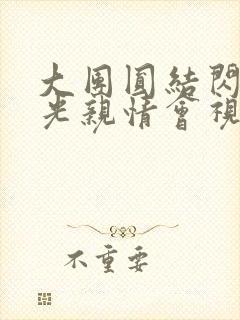 大團圓結閃
光親情會視
不重要